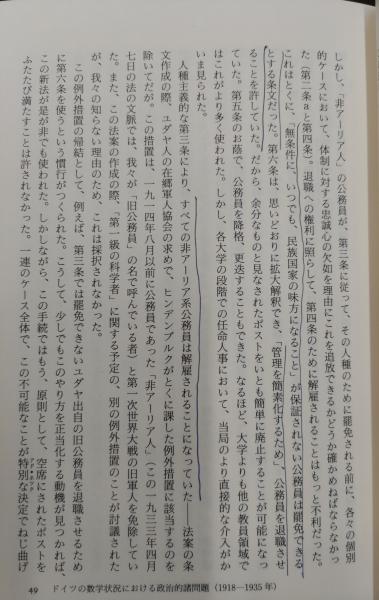 しかし、「非アーリア人」の公務員が、第三条に従って、その人種のために罷免される前に、各々の個別
的ケースにおいて、体制に対する忠誠心の欠如を理由にこれを追放できるかどうか確かめねばならなかっ
た（第二条aと第四条）。退職への権利に照らして、第四条のために解雇されることはもっと不利だった。
これはとくに、「無条件に、いつでも、民族国家の味方になること」が保証されない公務員は罷免できる
とする条文だった。第六条は、思いどおりに拡大解釈でき、「管理を簡素化するため」、公務員を退職させ
ることを許していた。だから、余分なものと見なされたポストをいとも簡単に廃止することが可能になっ
ていた。第五条のお蔭で、公務員を降格、更迭することもできた。なるほど、大学よりも他の教員領域で
はこれがより多く使われた。しかし、各大学の段階での任命人事において、当局のより直接的な介入がか
いま見られた。
人種主義的な第三条により、すべての非アーリア系公務員は解雇されることになっていた――法案の条
文作成の際、ユダヤ人の在郷軍人協会の求めで、ヒンデンブルクがとくに課した例外措置に該当するのを
除いてだが。この措置は、一九一四年八月以前に公務員であった「非アーリア人」（この一九三三年四月
七日の法の文脈では、我々が「旧公務員」の名で呼んでいる者）と第一次世界大戦の旧軍人を免除してい
た。また、この法案の作成の際、「第一級の科学者」に関する予定の、別の例外措置のことが討議された
が、我々の知らない理由のため、これは採択されなかった。
この例外措置の帰結として、例えば、第三条では罷免できないユダヤ出自の旧公務員を退職させるため
に第六条を使うという慣行がつくられた。こうして、少しでもこのやり方を正当化する動機が見つかれば、
この新法が是が非でも使われた。しかしながら、この手続ではもう、原則として、空席にされたポストを
ふたたび満たすことは許されなかった。一連のケース全体で、この不可能なことが特別な決定でねじ曲げ
49 ドイツの数学状況における政治的諸問題（1918―1935年）